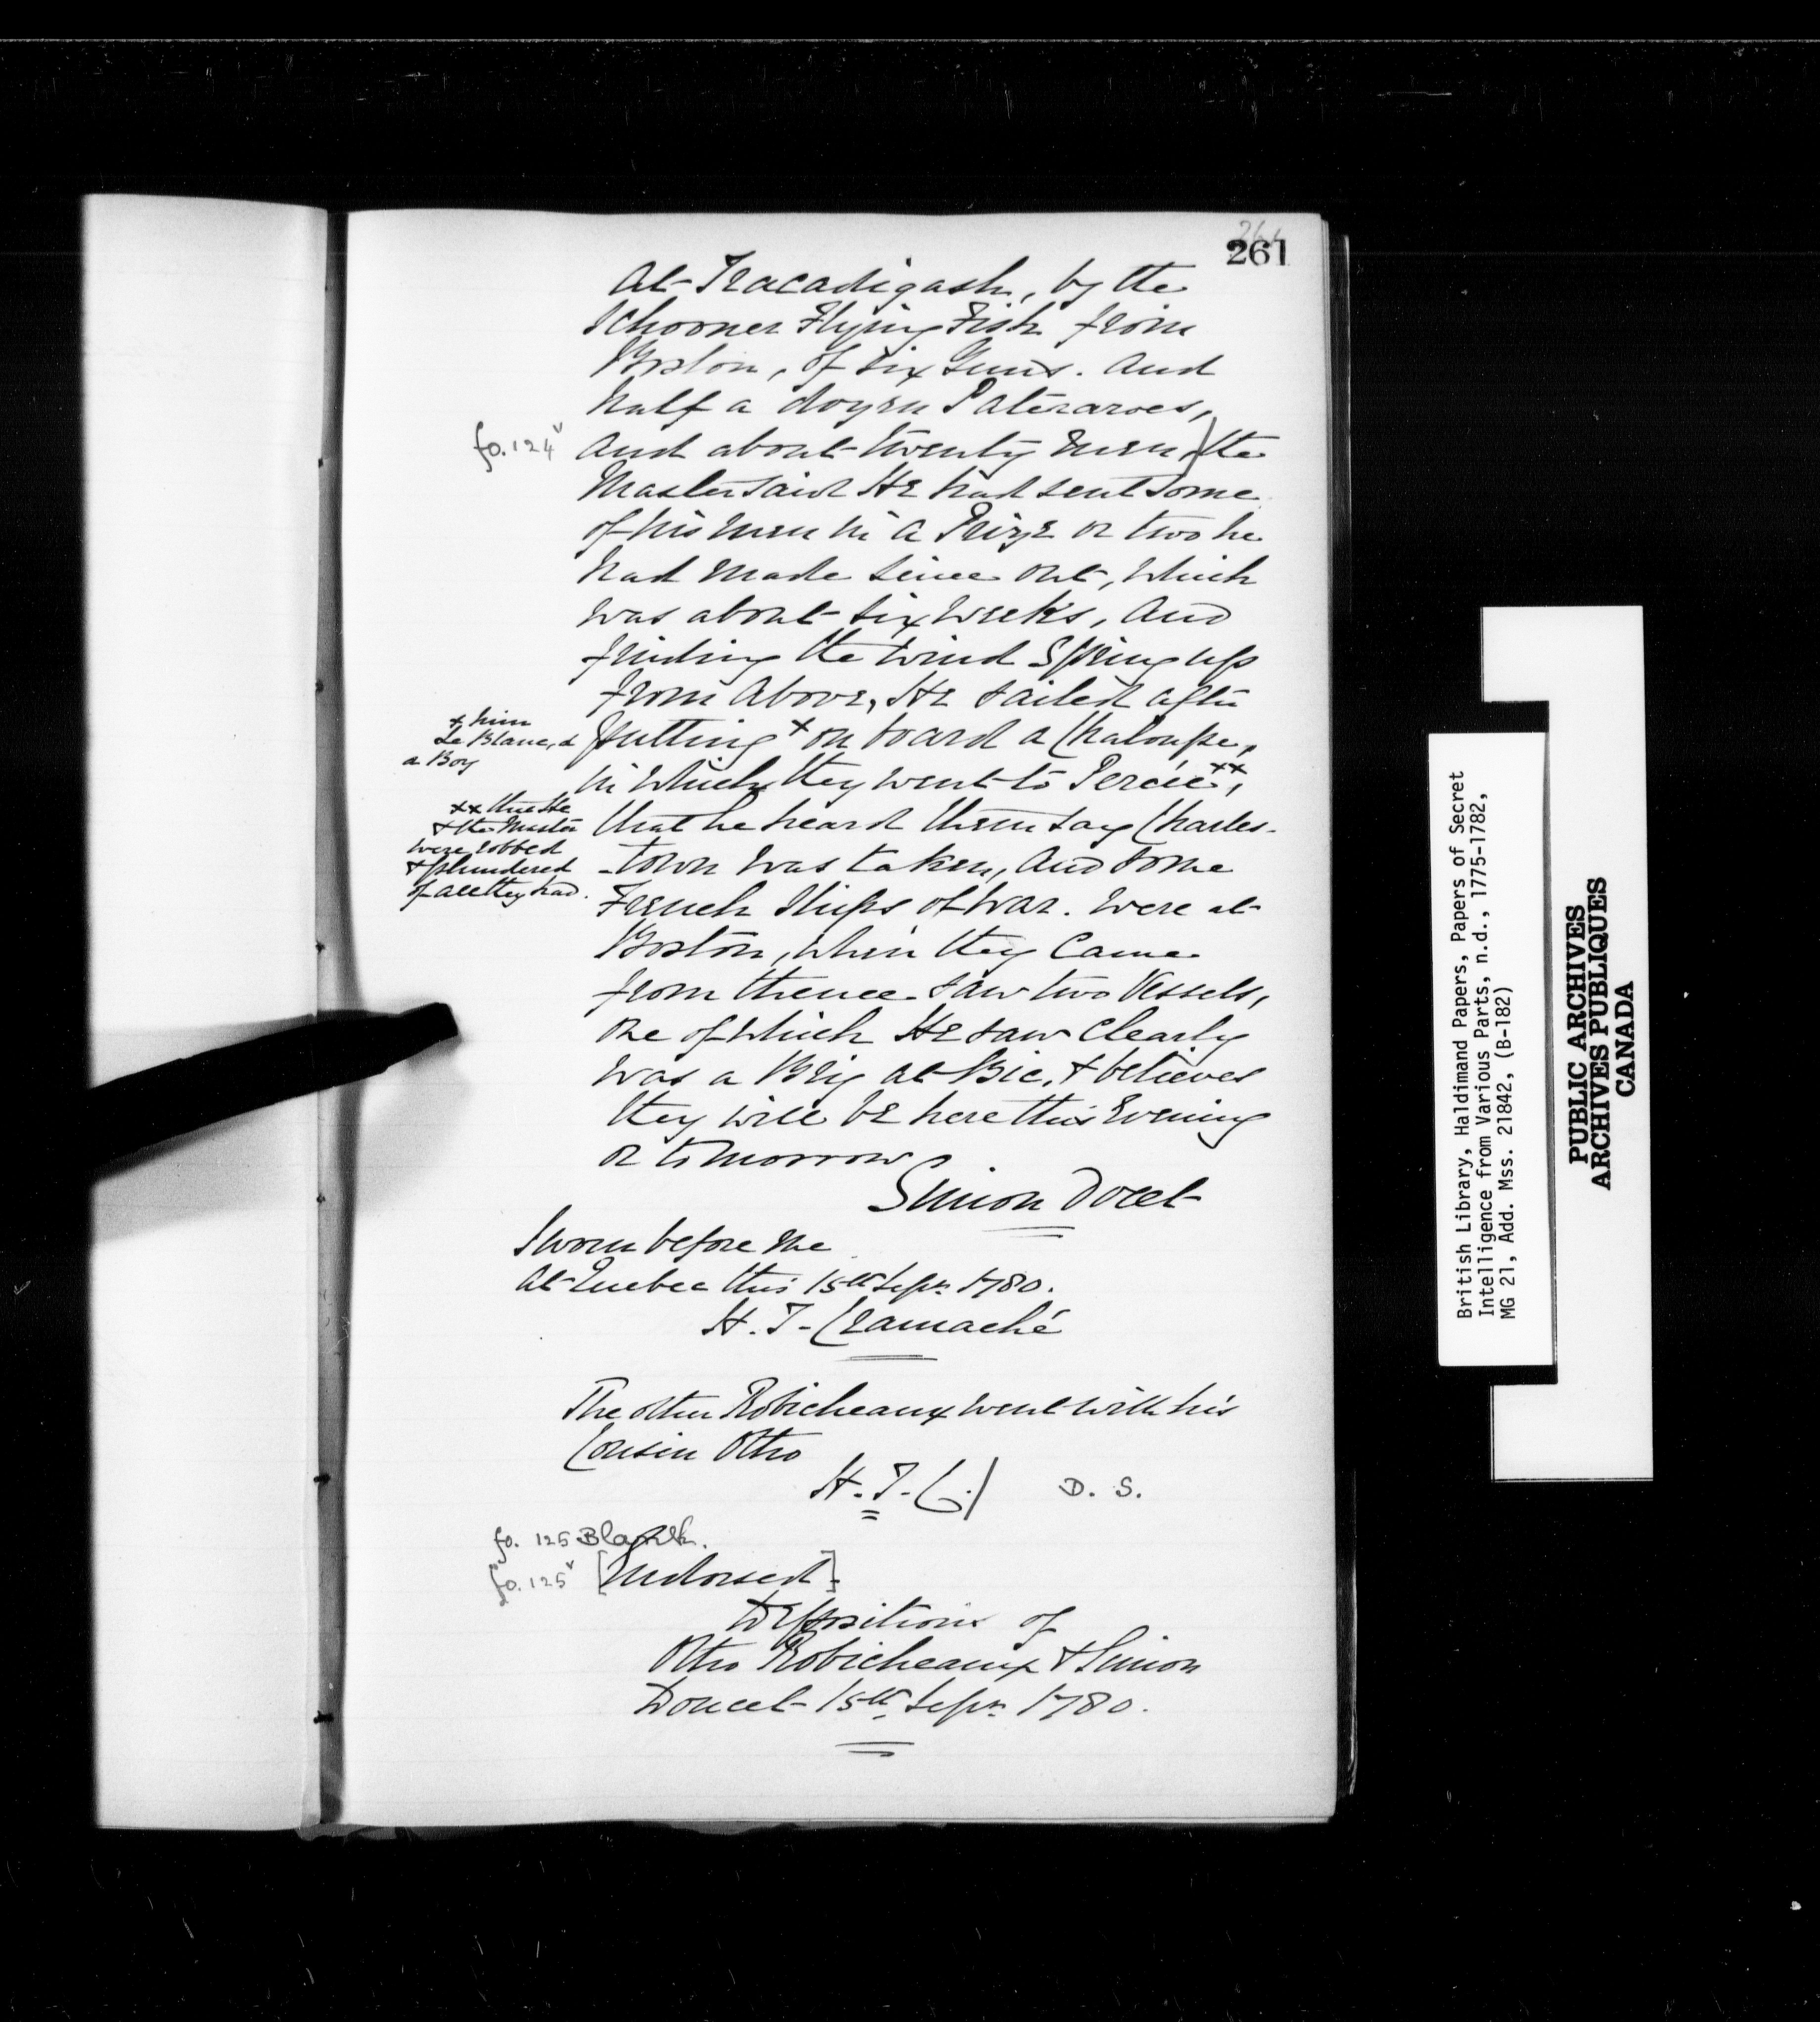 261
at Tracadigash, by the
Schooner Flying Fish from
Boston, of six Guns. and
half a dozen Pateraroes,
fo. 124v
and about twenty men / the
Master said He had sent some
of his men in a Prize or two he
had made since out, which
was about six weeks, and
finding the wind Spring up
from above, He sailed after
x him
Le Blanc, &
a Boy
putting x on board a Chaloupe,
in which they went to Percée xx,
xx that He
& the Master
were robbed
& plundered
of all they had.
that he heard them say Charles-
-town was taken, and some
French Ships of War. were at
Boston, when they Came
from thence. saw two Vessels,
one of which He saw Clearly
was a Brig at Bic, & believes
they will be here this Evening
or tomorrow
Simon Docet
Sworn before me
at Quebec this 15th Sepr. 1780.
H. T. Cramaché
The other Robicheaux went with his
Cousin Otho
H. T. C./ D. S.
fo. 125 Blank.
fo. 125v [Endorsed]
Depositions of
Otho Robicheaux & Simon
Doucet 15th Sepr. 1780.
British Library, Haldimand Papers, Papers of Secret
Intelligence from Various Parts, n.d., 1775-1782,
MG 21, Add. Mss. 21842, (B-182)
PUBLIC ARCHIVES
ARCHIVES PUBLIQUES
CANADA